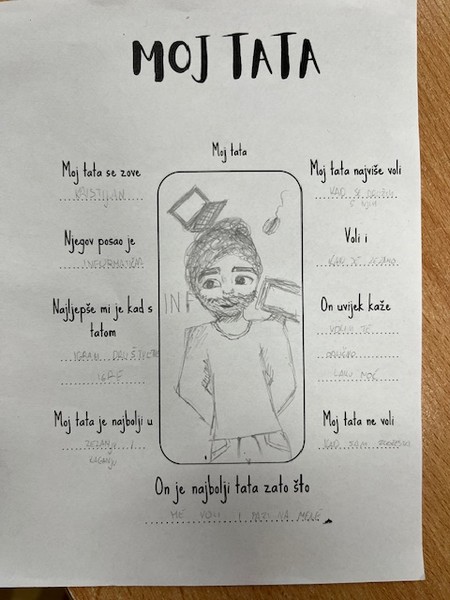 MOJ TATA
Moj tata
Moj tata se zove
KRISTIJAN
Njegov posao je
INFORMATIKA
Najljepše mi je kad s
tatom
IGRAM DRUŠTVENE
IGRE
Moj tata je najbolji u
ZEZANJU I
Moj tata najviše voli
KAD SE
S NJIM
Voli i
KAD JE
On uvijek kaže
VOLIM TE
LAKU NOĆ
Moj tata ne voli
KAD SAM
INF
On je najbolji tata zato što
ME VOLI I PAZI NA MENE